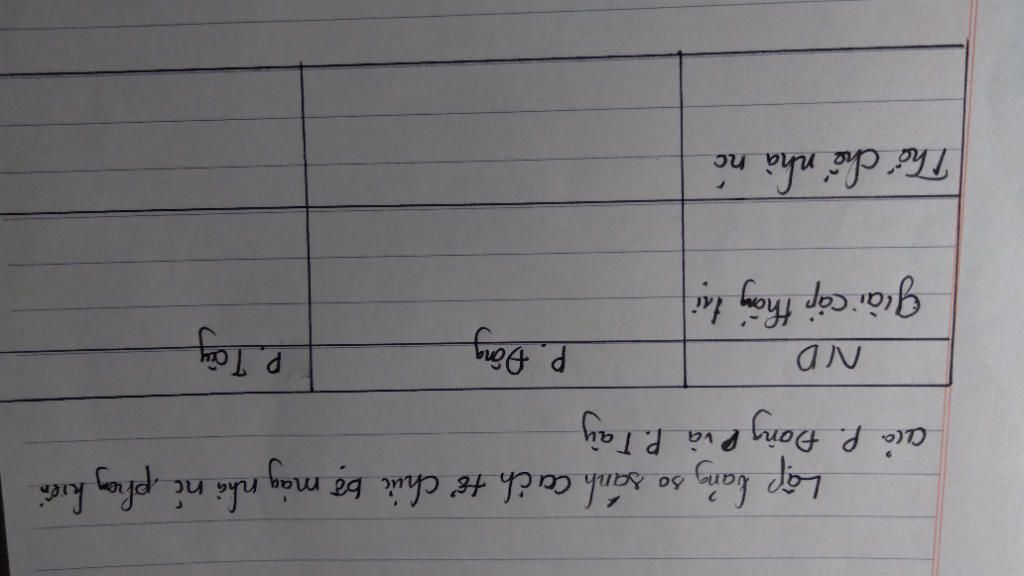 Lập bảng so sánh cách tổ chức bộ máy nhà nc phong kiến
của P. Đông và P. Tây
ND P. Đông P. Tây
Giai cấp thống trị
Thể chế nhà nc